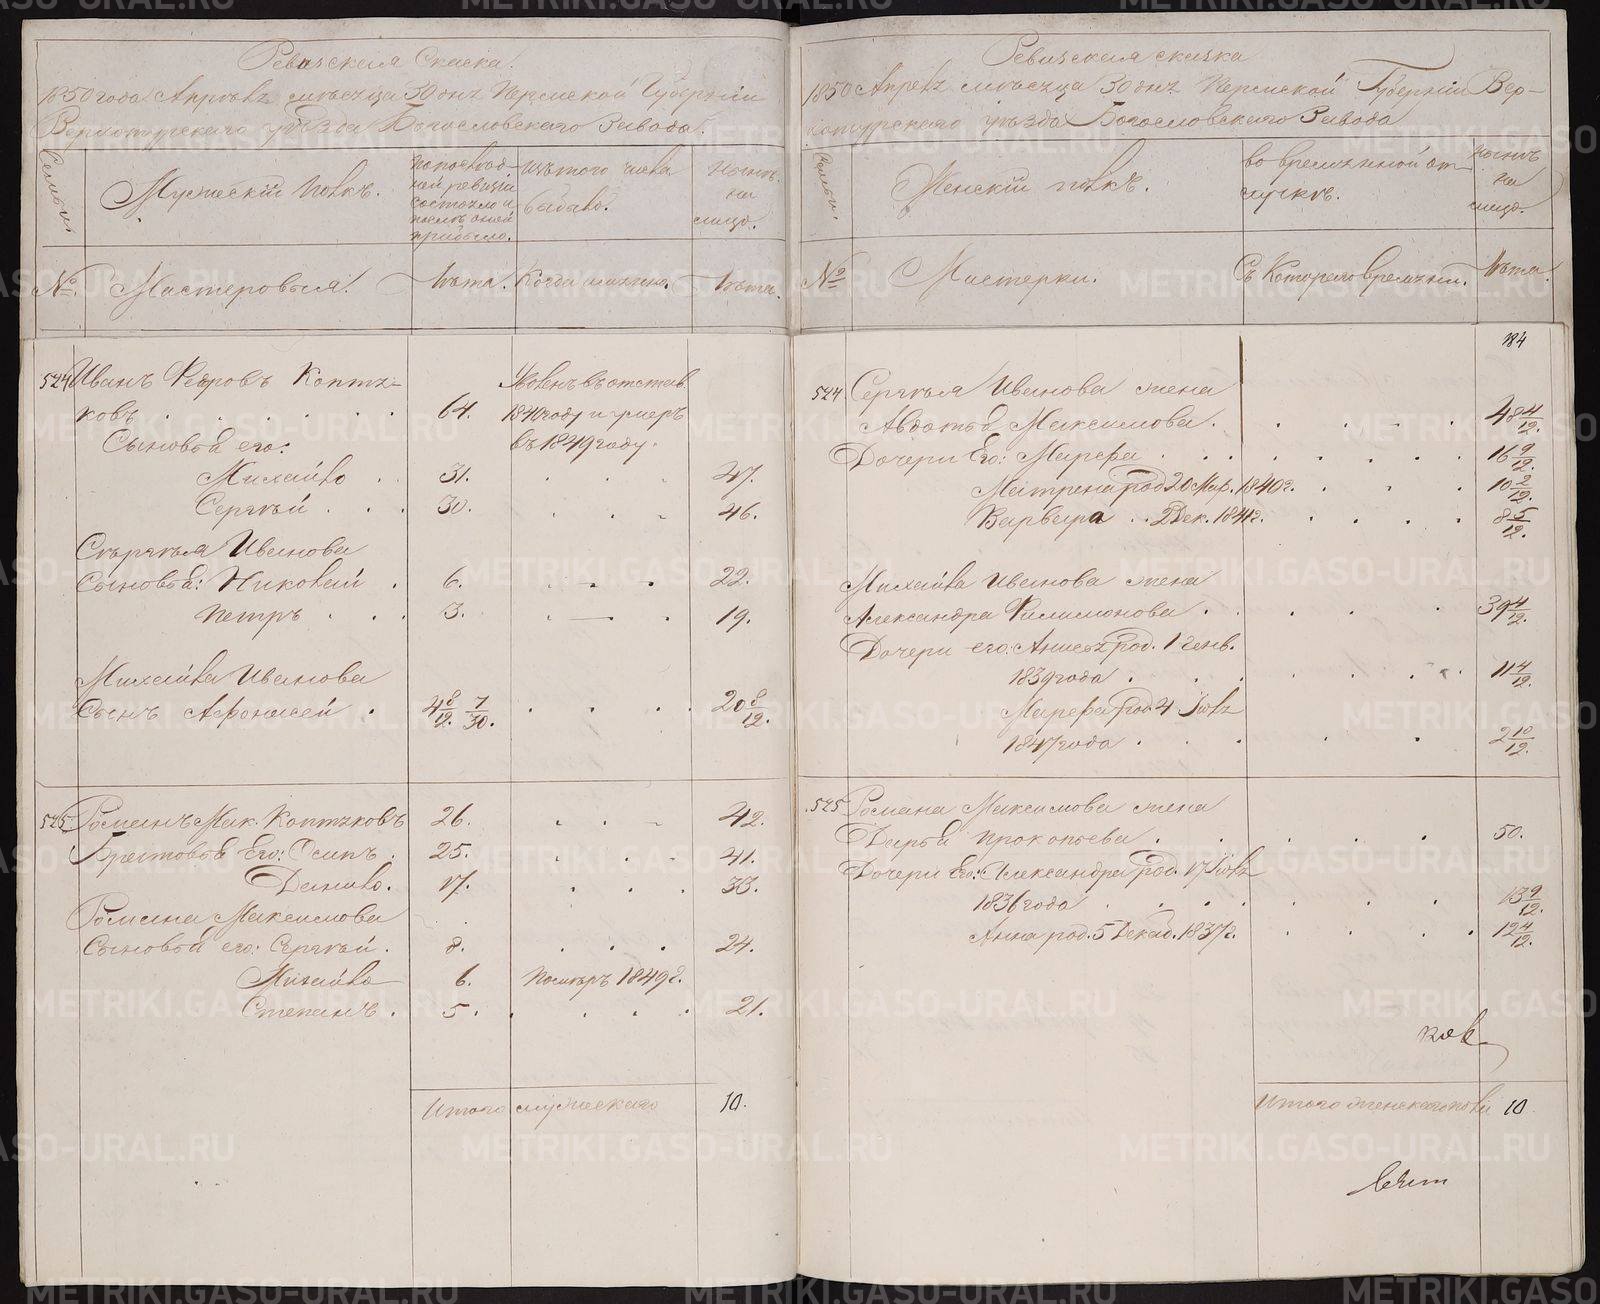 Ревизская Скаска.
1850 года Апреля месяца 30 дня Пермской Губернии
Верхотурскаго уезда Богословскаго Завода.
Семьи.
Мужескій полъ.
По последней ревизіи состояло и после оной прибыло.
Изъ того числа выбыло.
Ныне на лицо.
№. Мастеровыя. Лета. Когда именно. Лета.
524 Иванъ Федоровъ Коптяковъ . . . . . . 64. Уволенъ въ отстав. 1840 году и умеръ въ 1849 году.
Сыновья его:
Михайло . . 31. . . . 47.
Сергей . . . 30. . . . 46.
Сергея Иванова
Сыновья: Николай . 6. . . . 22.
Петръ . . . 3. . . . 19.
Михайла Иванова
Сынъ Афонасей . 4 8/12. 7/30. . . . . 20 8/12.
525 Романъ Мак. Коптяковъ 26. . . . 42.
Братовья Его: Осипъ . 25. . . . 41.
Данило. 17. . . . 33.
Романа Максимова
Сыновья его: Сергей . 8. . . . 24.
Михайло 6. Померъ 1849 г.
Степанъ . 5 . . . . . 21.
Итого мужескаго 10.
Ревизская сказка
1850 Апреля месяца 30 дня Пермской Губерніи Верхотурскаго уезда Богословскаго Завода
Семьи.
Женскій полъ.
во временной отлучке.
Ныне на лицо.
№ Мастерки. Съ Котораго времени. Лета.
184
524 Сергея Иванова жена
Авдотья Максимова. . . . . 48 4/12.
Дочери Его: Марфа . . . . . . . 16 9/12.
Матрена род. 20 Мар. 1840 г. . . . 10 2/12.
Варвара . . 2 Дек. 1841 г. . . . . 8 5/12.
Михайла Иванова жена
Александра Филимонова . . . . 39 4/12.
Дочери его: Анисья род. 1 Генв.
1839 года . . . . . . 11 4/12.
Марфа род. 4 Іюля
1847 года . . . . . 2 10/12.
525 Романа Максимова жена
Дарья Прокопьева . . . . . 50.
Дочери Его: Александра род. 17 Іюля
1836 года . . . . . . 13 9/12.
Анна род. 5 Декаб. 1837 г. . . . . 12 4/12.
ков
Итого женскаго пола 10
METRIKI.GASO-URAL.RU